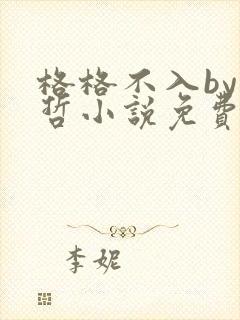 格格不入by
哲小說免費
李妮